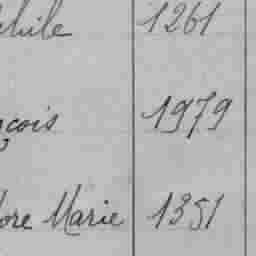 phile 1261
nçois 1979
dore Marie 1351